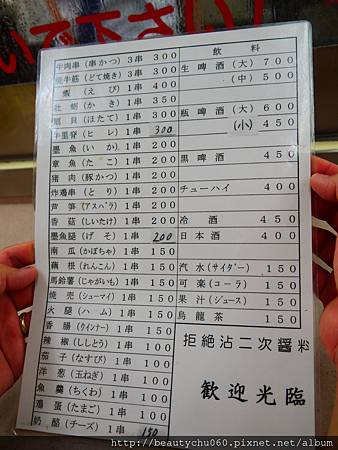 いで下さい!
牛肉串 (串かつ) 3串 300
牛筋 (どて焼き) 3串 300
蝦 (えび) 1串 400
牡蛎 (かき) 1串 350
扇貝 (ほたて) 1串 300
牛里脊 (ヒレ) 1串 300
墨魚 (いか) 1串 200
章魚 (たこ) 1串 200
猪肉 (豚かつ) 1串 200
炸鶏串 (とり) 1串 200
芦笋 (アスパラ) 1串 200
香菇 (しいたけ) 1串 200
墨魚腿 (げそ) 1串 200
南瓜 (かぼちゃ) 1串 150
藕根 (れんこん) 1串 150
馬鈴薯 (じゃがいも) 1串 150
焼売 (シューマイ) 1串 150
火腿 (ハム) 1串 150
香腸 (ウインナー) 1串 150
辣椒 (ししとう) 1串 100
茄子 (なすび) 1串 100
洋葱 (玉ねぎ) 1串 100
魚羹 (ちくわ) 1串 100
鶏蛋 (たまご) 1串 100
奶酪 (チーズ) 1串 150
飲料
生啤酒 (大) 700
(中) 500
瓶啤酒 (大) 600
(小) 450
黒啤酒 450
チューハイ 400
冷酒 450
日本酒 400
汽水 (サイダー) 150
可楽 (コーラ) 150
果汁 (ジュース) 150
烏龍茶 150
拒絶沾二次醤料
歓迎光臨
http://beautychu060.pixnet.net/album